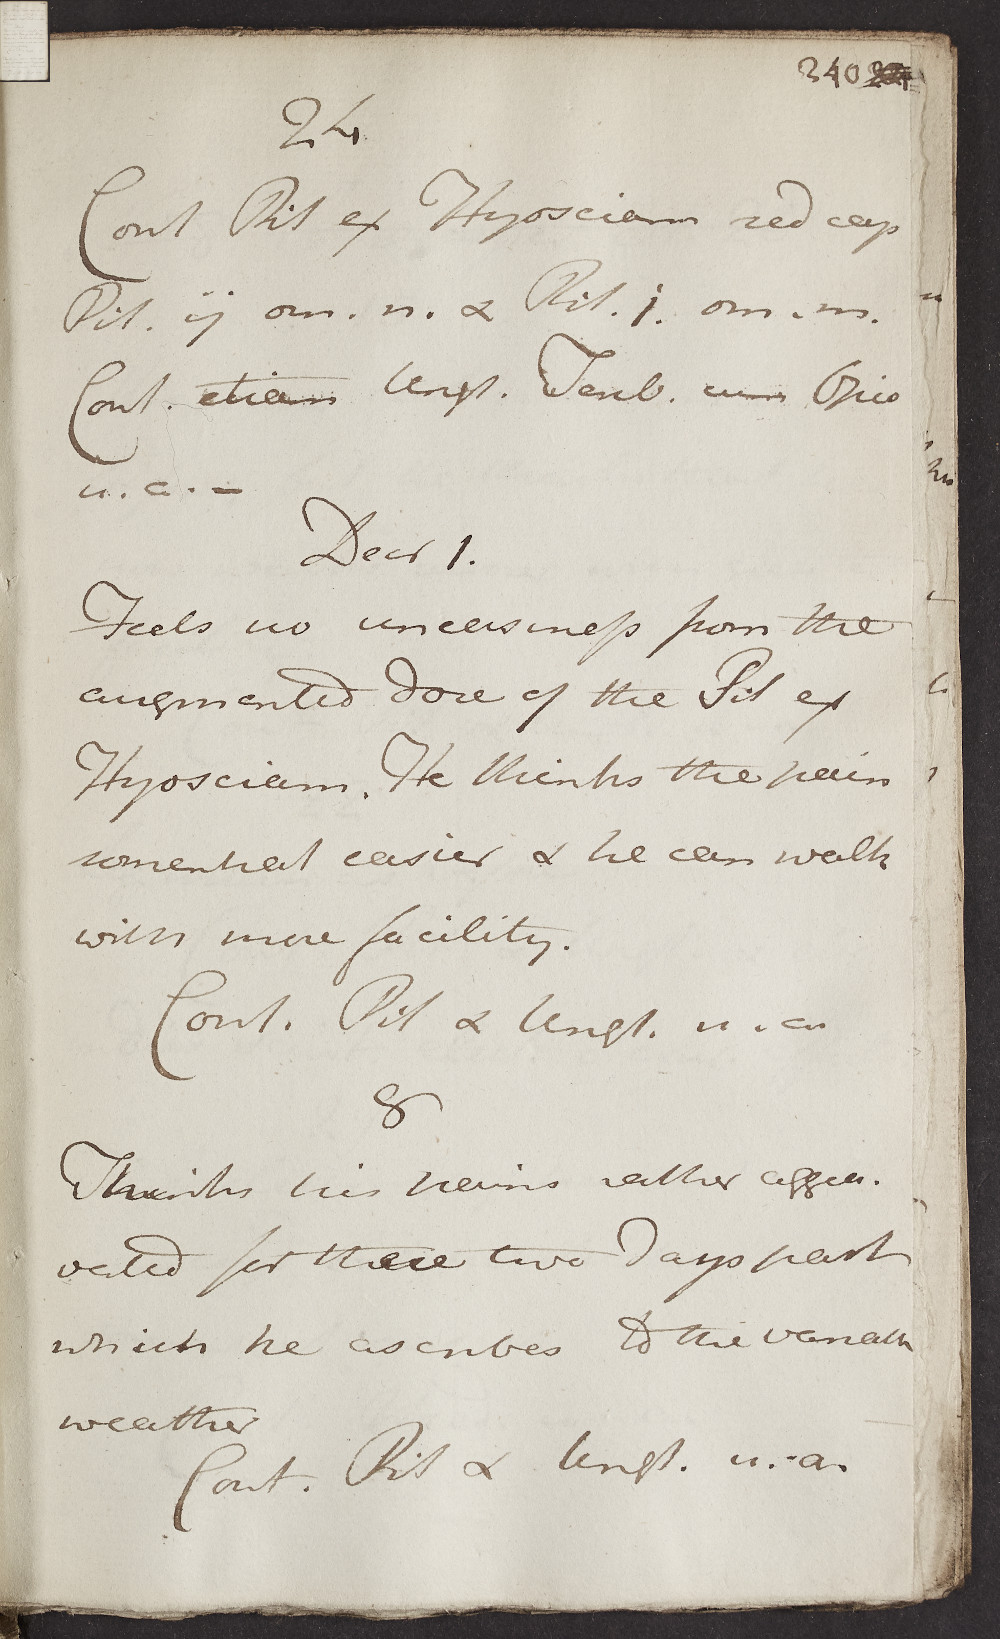 240
24
Cont Pil ex Hyosciam sed cap
Pil. ij om. n. & Pil. j. om. m.
Cont. etiam Ungt. Tenb. cum Opio
u. a. -
Decr 1.
Feels no uneasiness from the
augmented dose of the Pil ex
Hyosciam. He thinks the pain
somewhat easier & he can walk
with more facility.
Cont. Pil & Ungt. u. a.
8
Thinks his pains rather aggra.
vated for these two days past
which he ascribes to the variable
weather
Cont. Pil & Ungt. u. a.